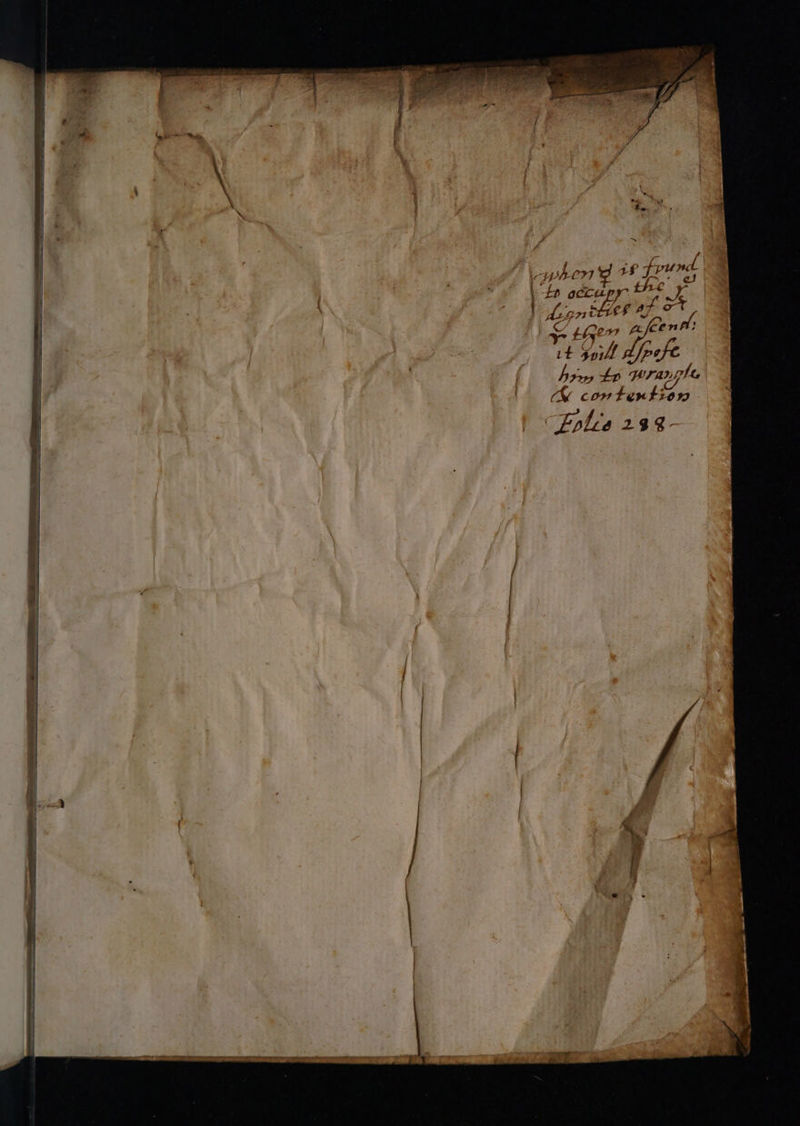 is found
to occupy the
dignities of
them ascend:
it will dispose
him to wrangle
& contention
Folio 288